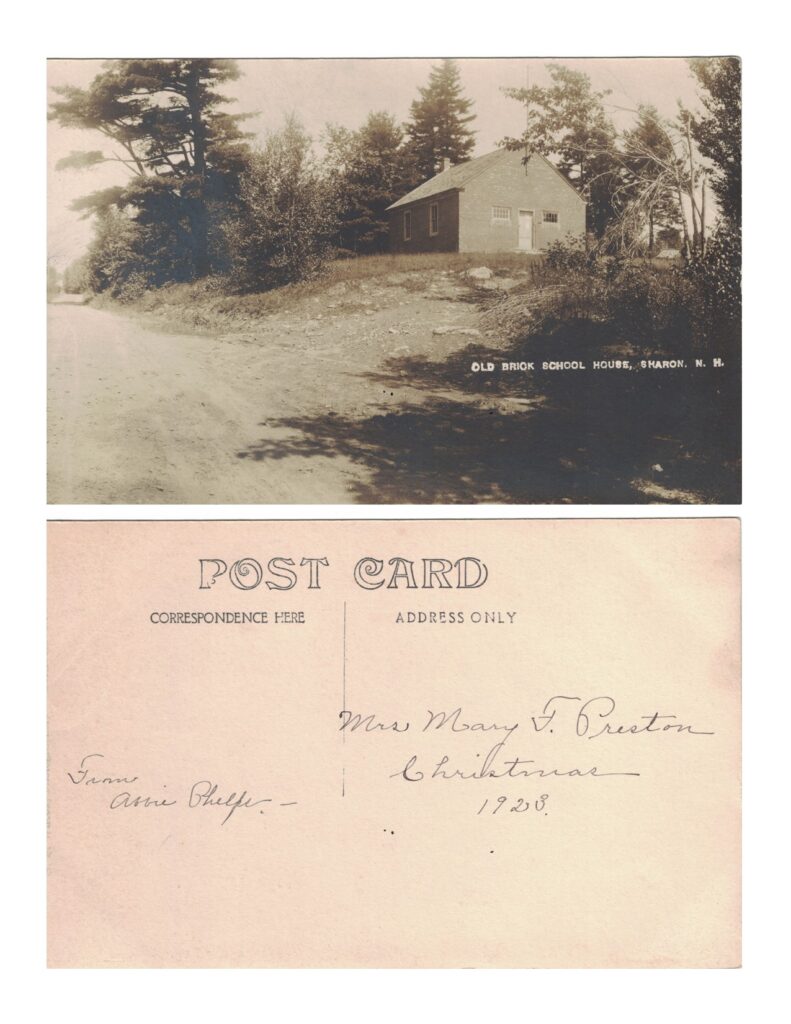 OLD BRICK SCHOOL HOUSE, SHARON, N. H.
POST CARD
CORRESPONDENCE HERE
ADDRESS ONLY
Mrs Mary F. Preston
Christmas
1923.
From
Phelps.